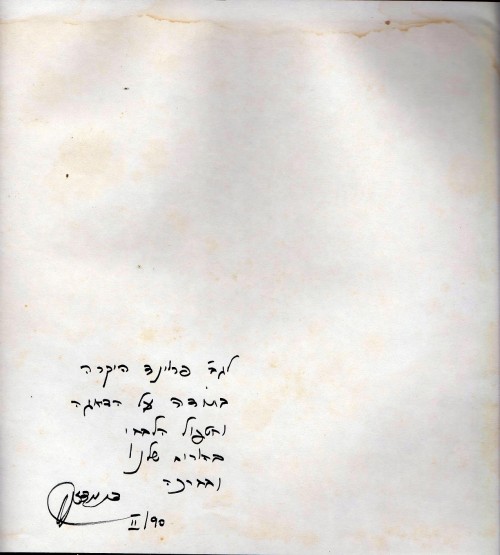 לגב' פרוינד היקרה
בתודה על הדאגה
והטפול הלבבי
בהורים שלנו
ובברכה
II/90